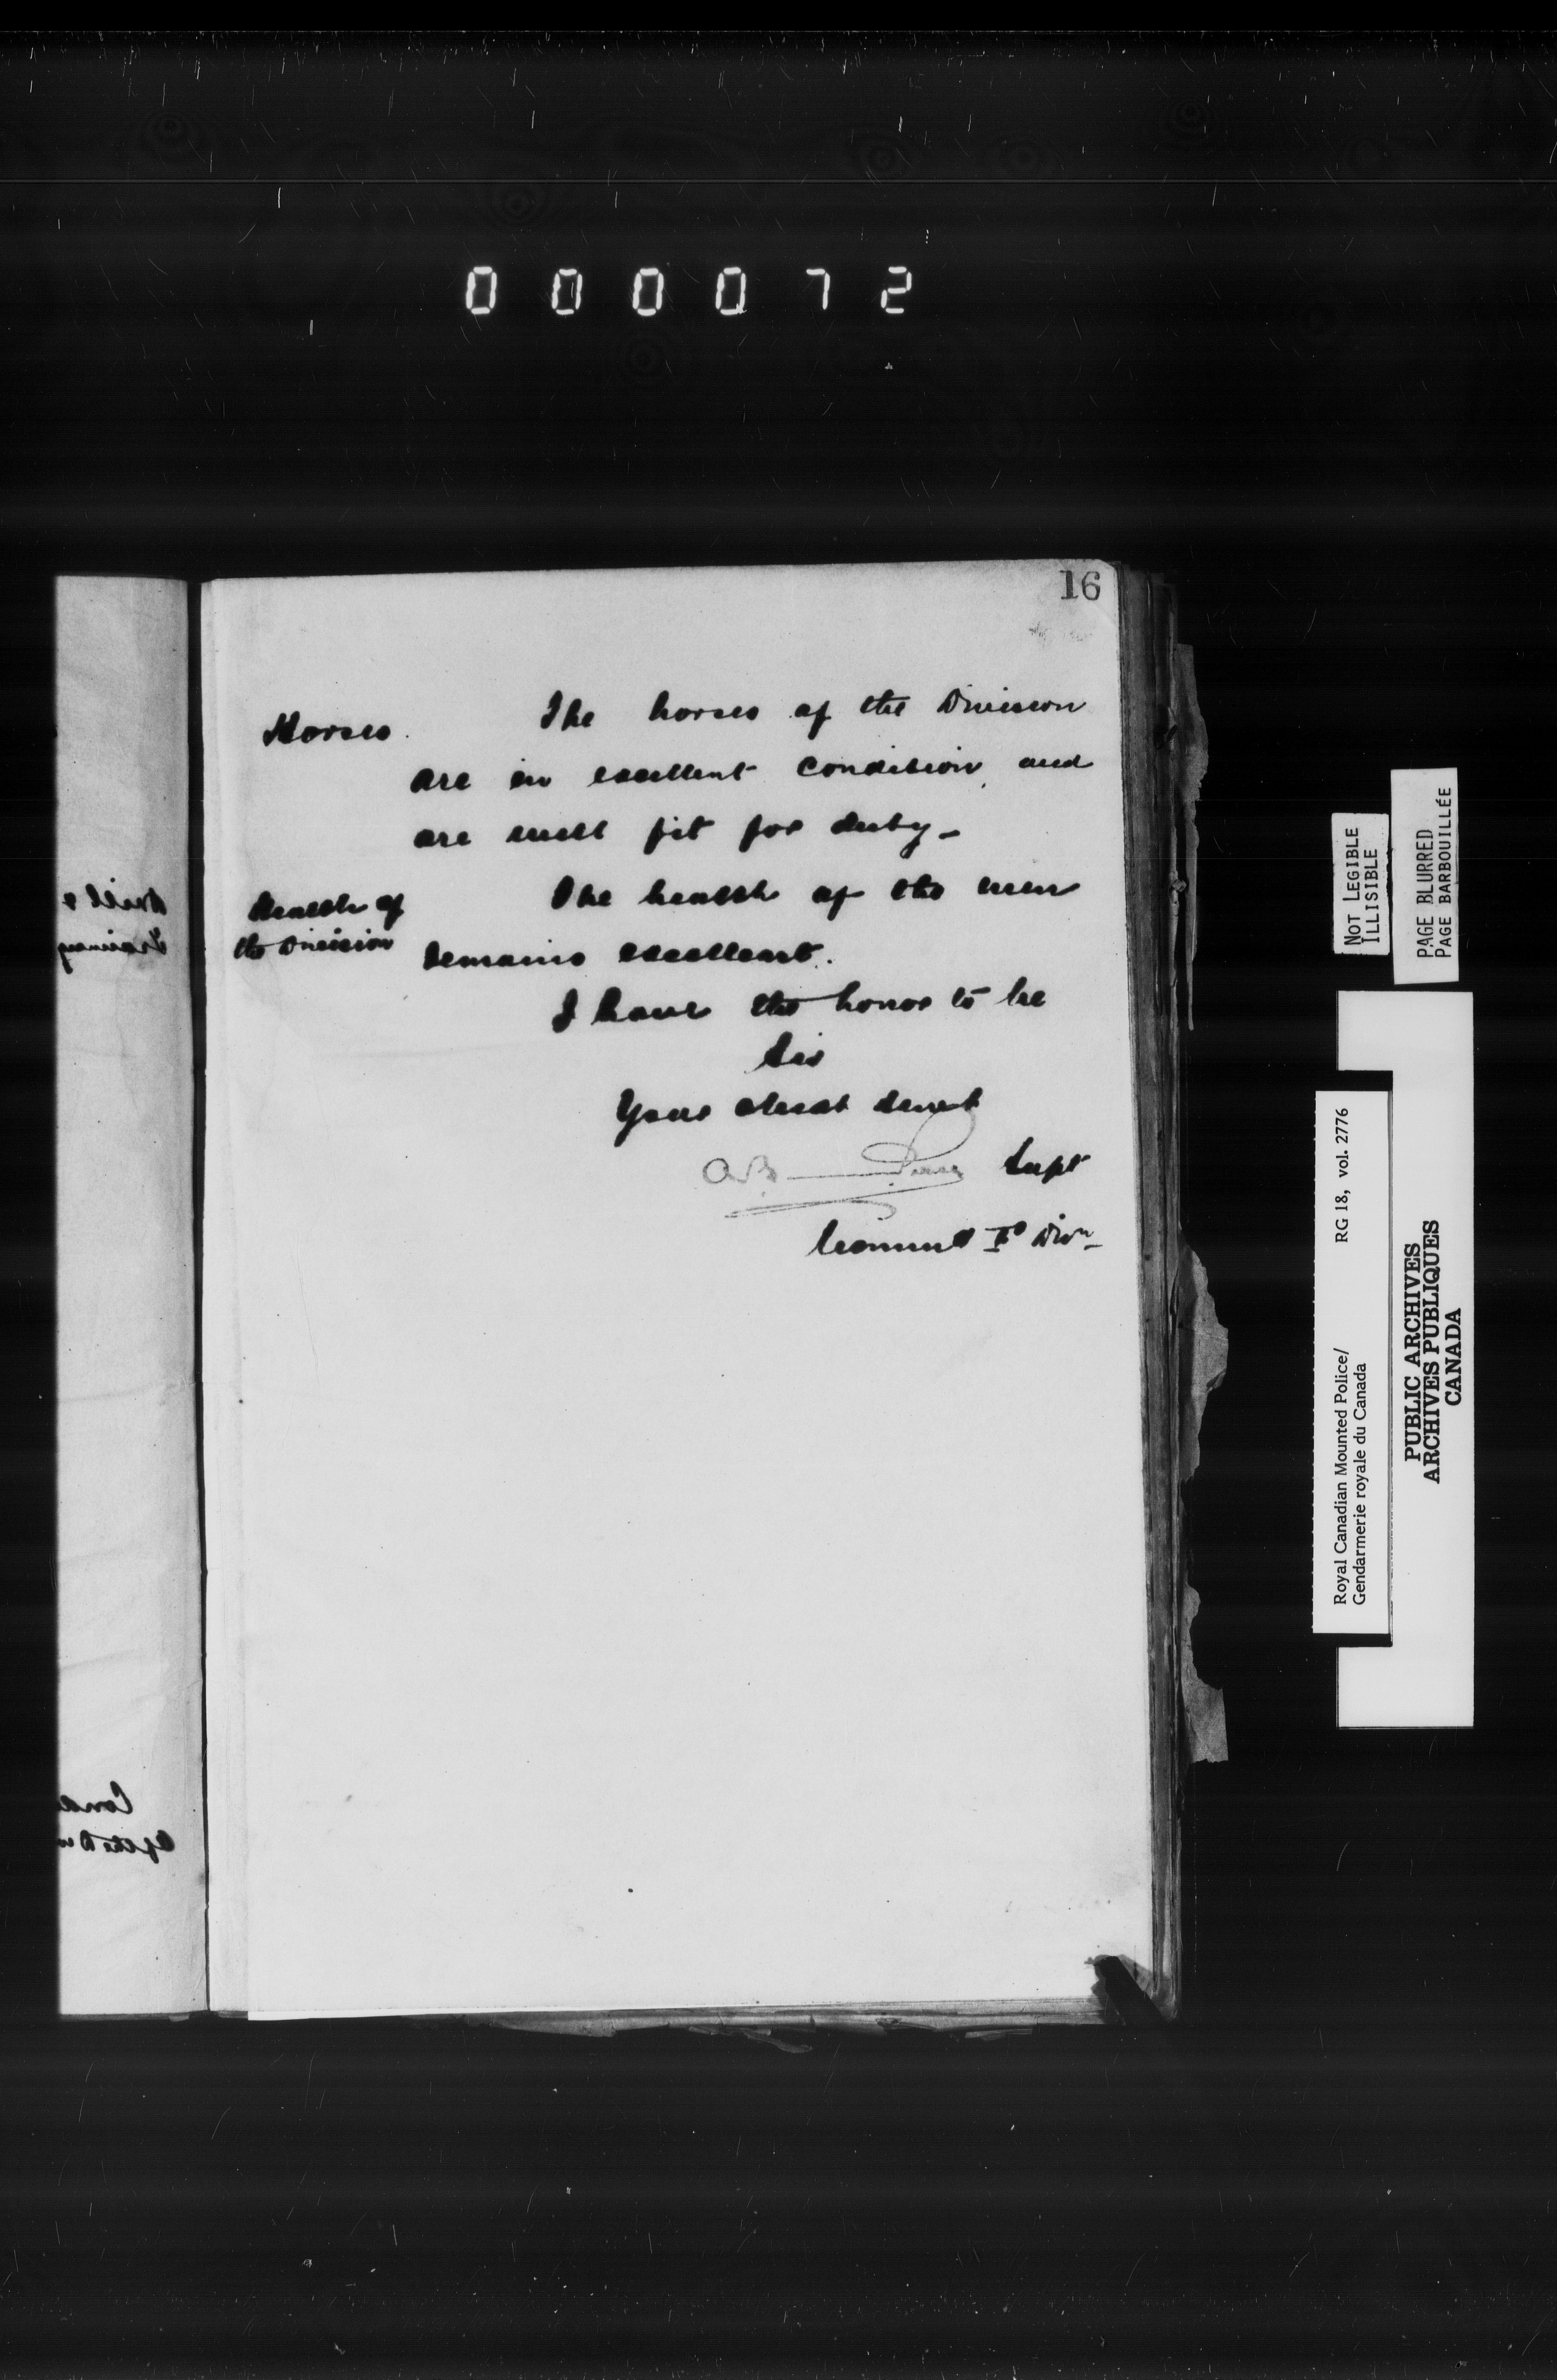 000072
16
Horses. The horses of the Division
are in excellent condition and
are well fit for duty-
Health of
the Division
The health of the men
remains excellent.
I have the honor to be
Sir
Your obedt servt
A.B. Perry Supt
Commd "F" Divn
NOT LEGIBLE
ILLISIBLE
PAGE BLURRED
PAGE BARBOUILLÉE
Royal Canadian Mounted Police/ RG 18, vol. 2776
Gendarmerie royale du Canada
PUBLIC ARCHIVES
ARCHIVES PUBLIQUES
CANADA
Drill &
Training
Cond
of the Div